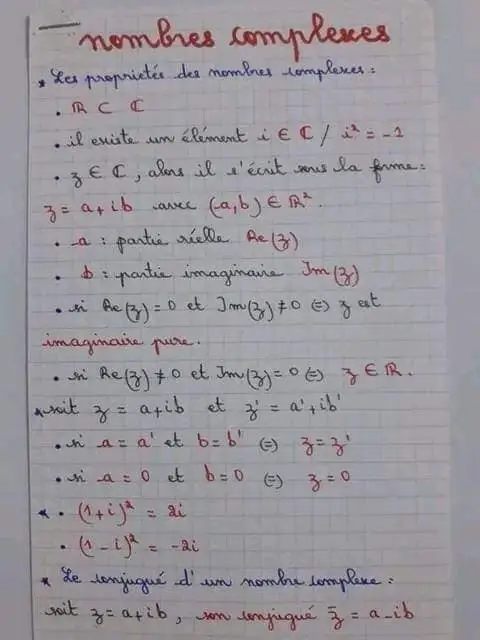 nombres complexes
* Les propriétés des nombres complexes :
• ℝ ⊂ ℂ
• il existe un élément i ∈ ℂ / i² = -1
• z ∈ ℂ, alors il s'écrit sous la forme :
z = a + ib avec (a, b) ∈ ℝ².
• a : partie réelle Re(z)
• b : partie imaginaire Im(z)
• si Re(z) = 0 et Im(z) ≠ 0 (=) z est
imaginaire pure.
• si Re(z) ≠ 0 et Im(z) = 0 (=) z ∈ ℝ.
* soit z = a + ib et z' = a' + ib'
• si a = a' et b = b' (=) z = z'
• si a = 0 et b = 0 (=) z = 0
* • (1 + i)² = 2i
• (1 - i)² = -2i
* Le conjugué d'un nombre complexe :
soit z = a + ib, son conjugué z̄ = a - ib